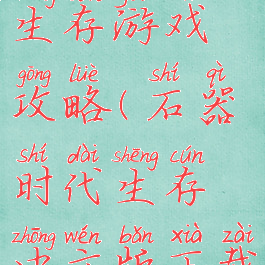 生存游戏
gōng lüè shí qì
攻略(石器
shí dài shēng cún
时代生存
zhōng wén bǎn xià zài
中文版下载